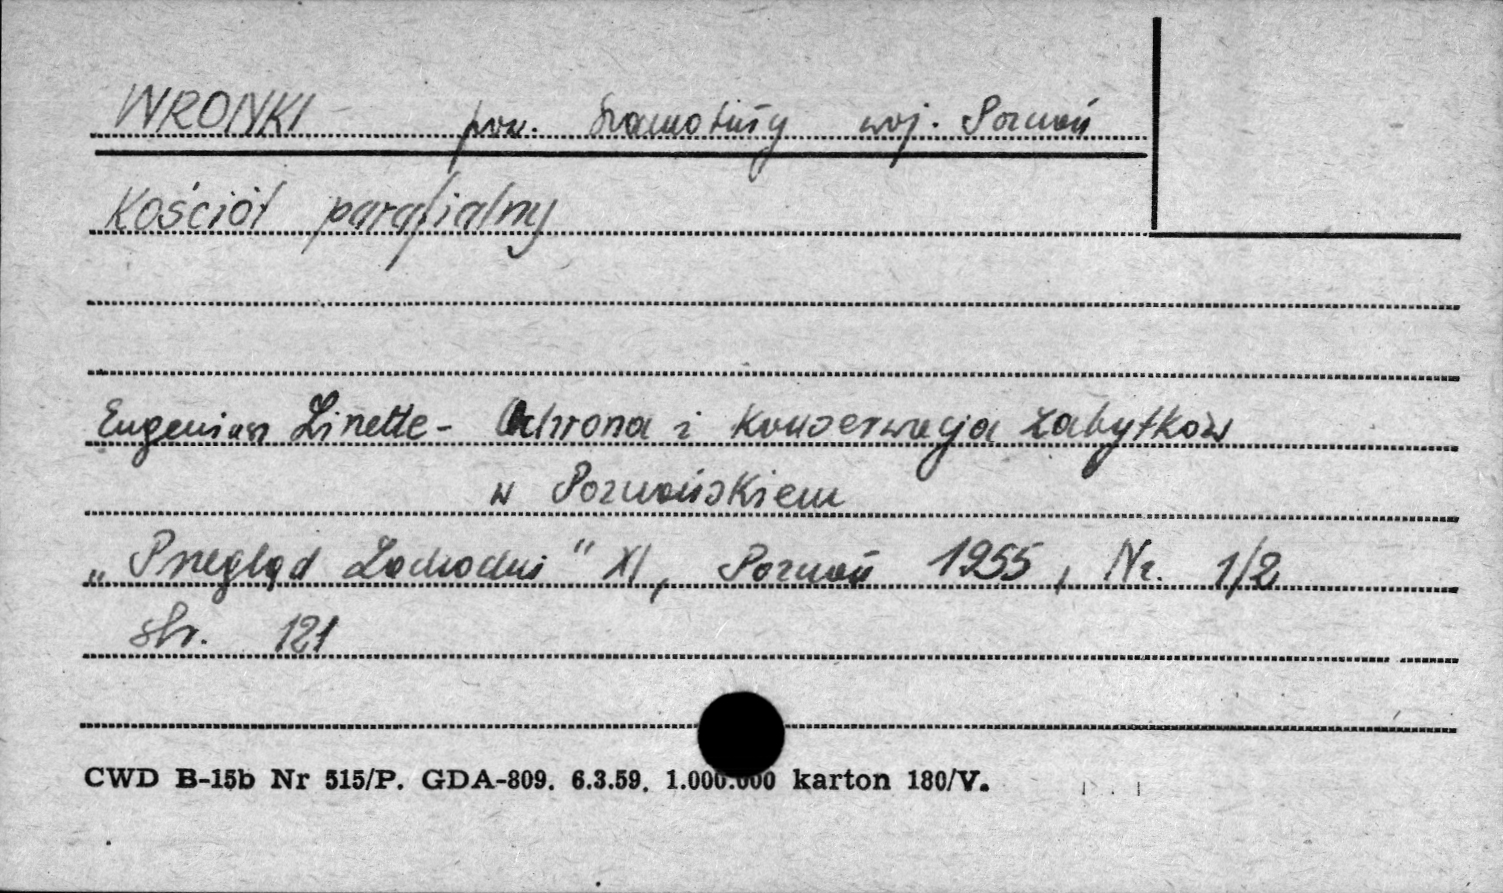 WRONKI pow. Szamotuły woj. Poznań
Kościół parafialny
Eugeniusz Linette - Ochrona i konserwacja zabytków
w Poznańskiem
„Przegląd Zachodni" XI, Poznań 1955, Nr. 1/2
str. 121
CWD B-15b Nr 515/P. GDA-809. 6.3.59. 1.000.000 karton 180/V.